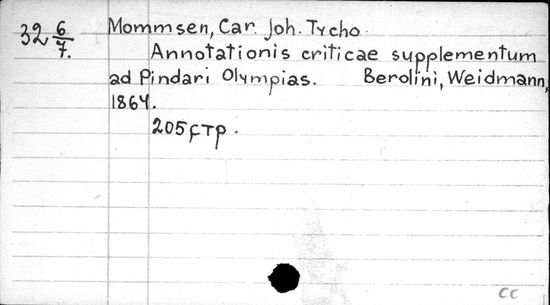 32 6/7. Mommsen, Car. Joh. Tycho.
Annotationis criticae supplementum
ad Pindari Olympias. Berolini, Weidmann,
1864.
205 стр.
CC